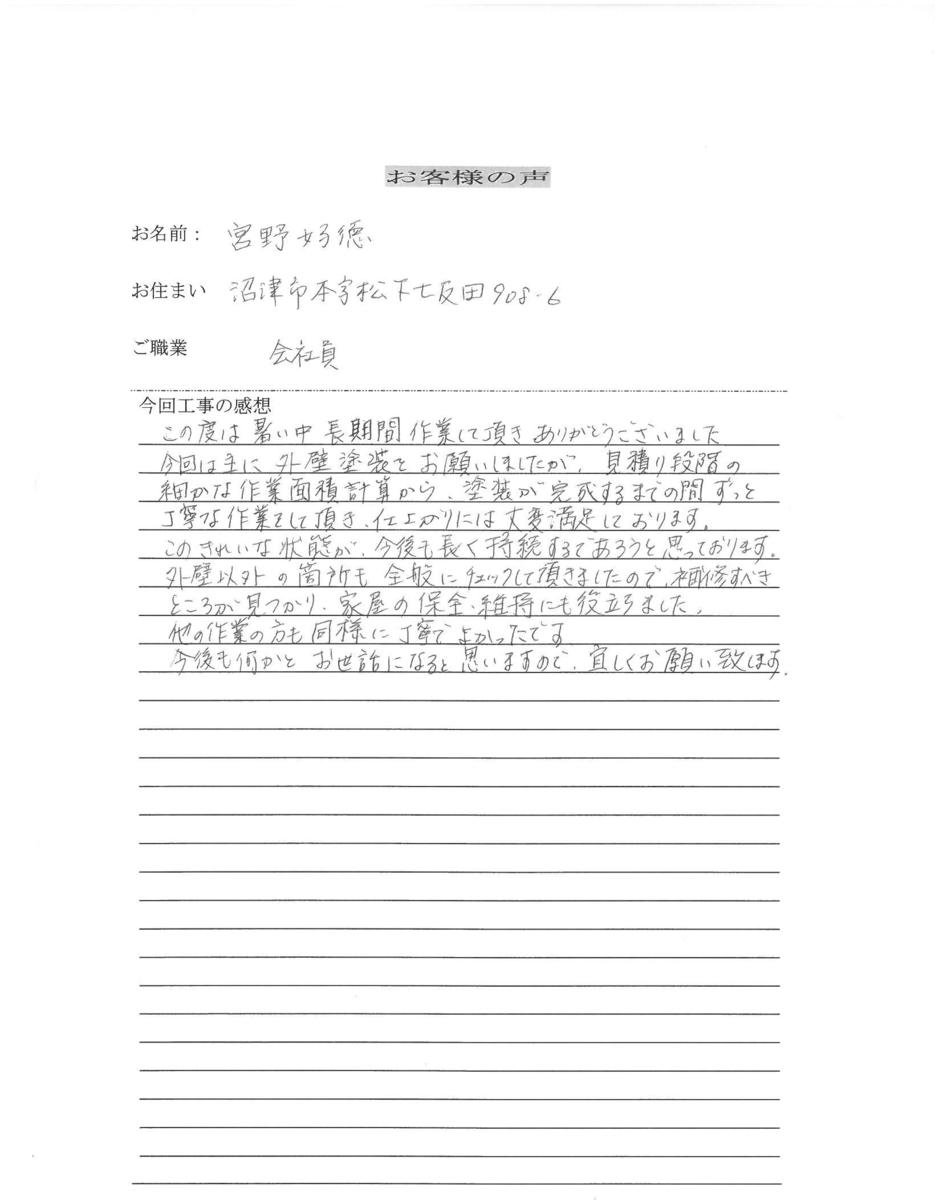 お客様の声
お名前： 宮野好徳
お住まい 沼津市本字松下七反田908-6
ご職業 会社員
今回工事の感想
この度は暑い中長期間作業して頂きありがとうございました
今回は主に外壁塗装をお願いしましたが、見積り段階の
細かな作業面積計算から、塗装が完成するまでの間ずっと
丁寧な作業をして頂き、仕上がりには大変満足しております。
このきれいな状態が、今後も長く持続するであろうと思っております。
外壁以外の箇所も全般にチェックして頂きましたので、補修すべき
ところが見つかり、家屋の保全、維持にも役立ちました。
他の作業の方も同様に丁寧でよかったです
今後も何かとお世話になると思いますので、宜しくお願い致します。